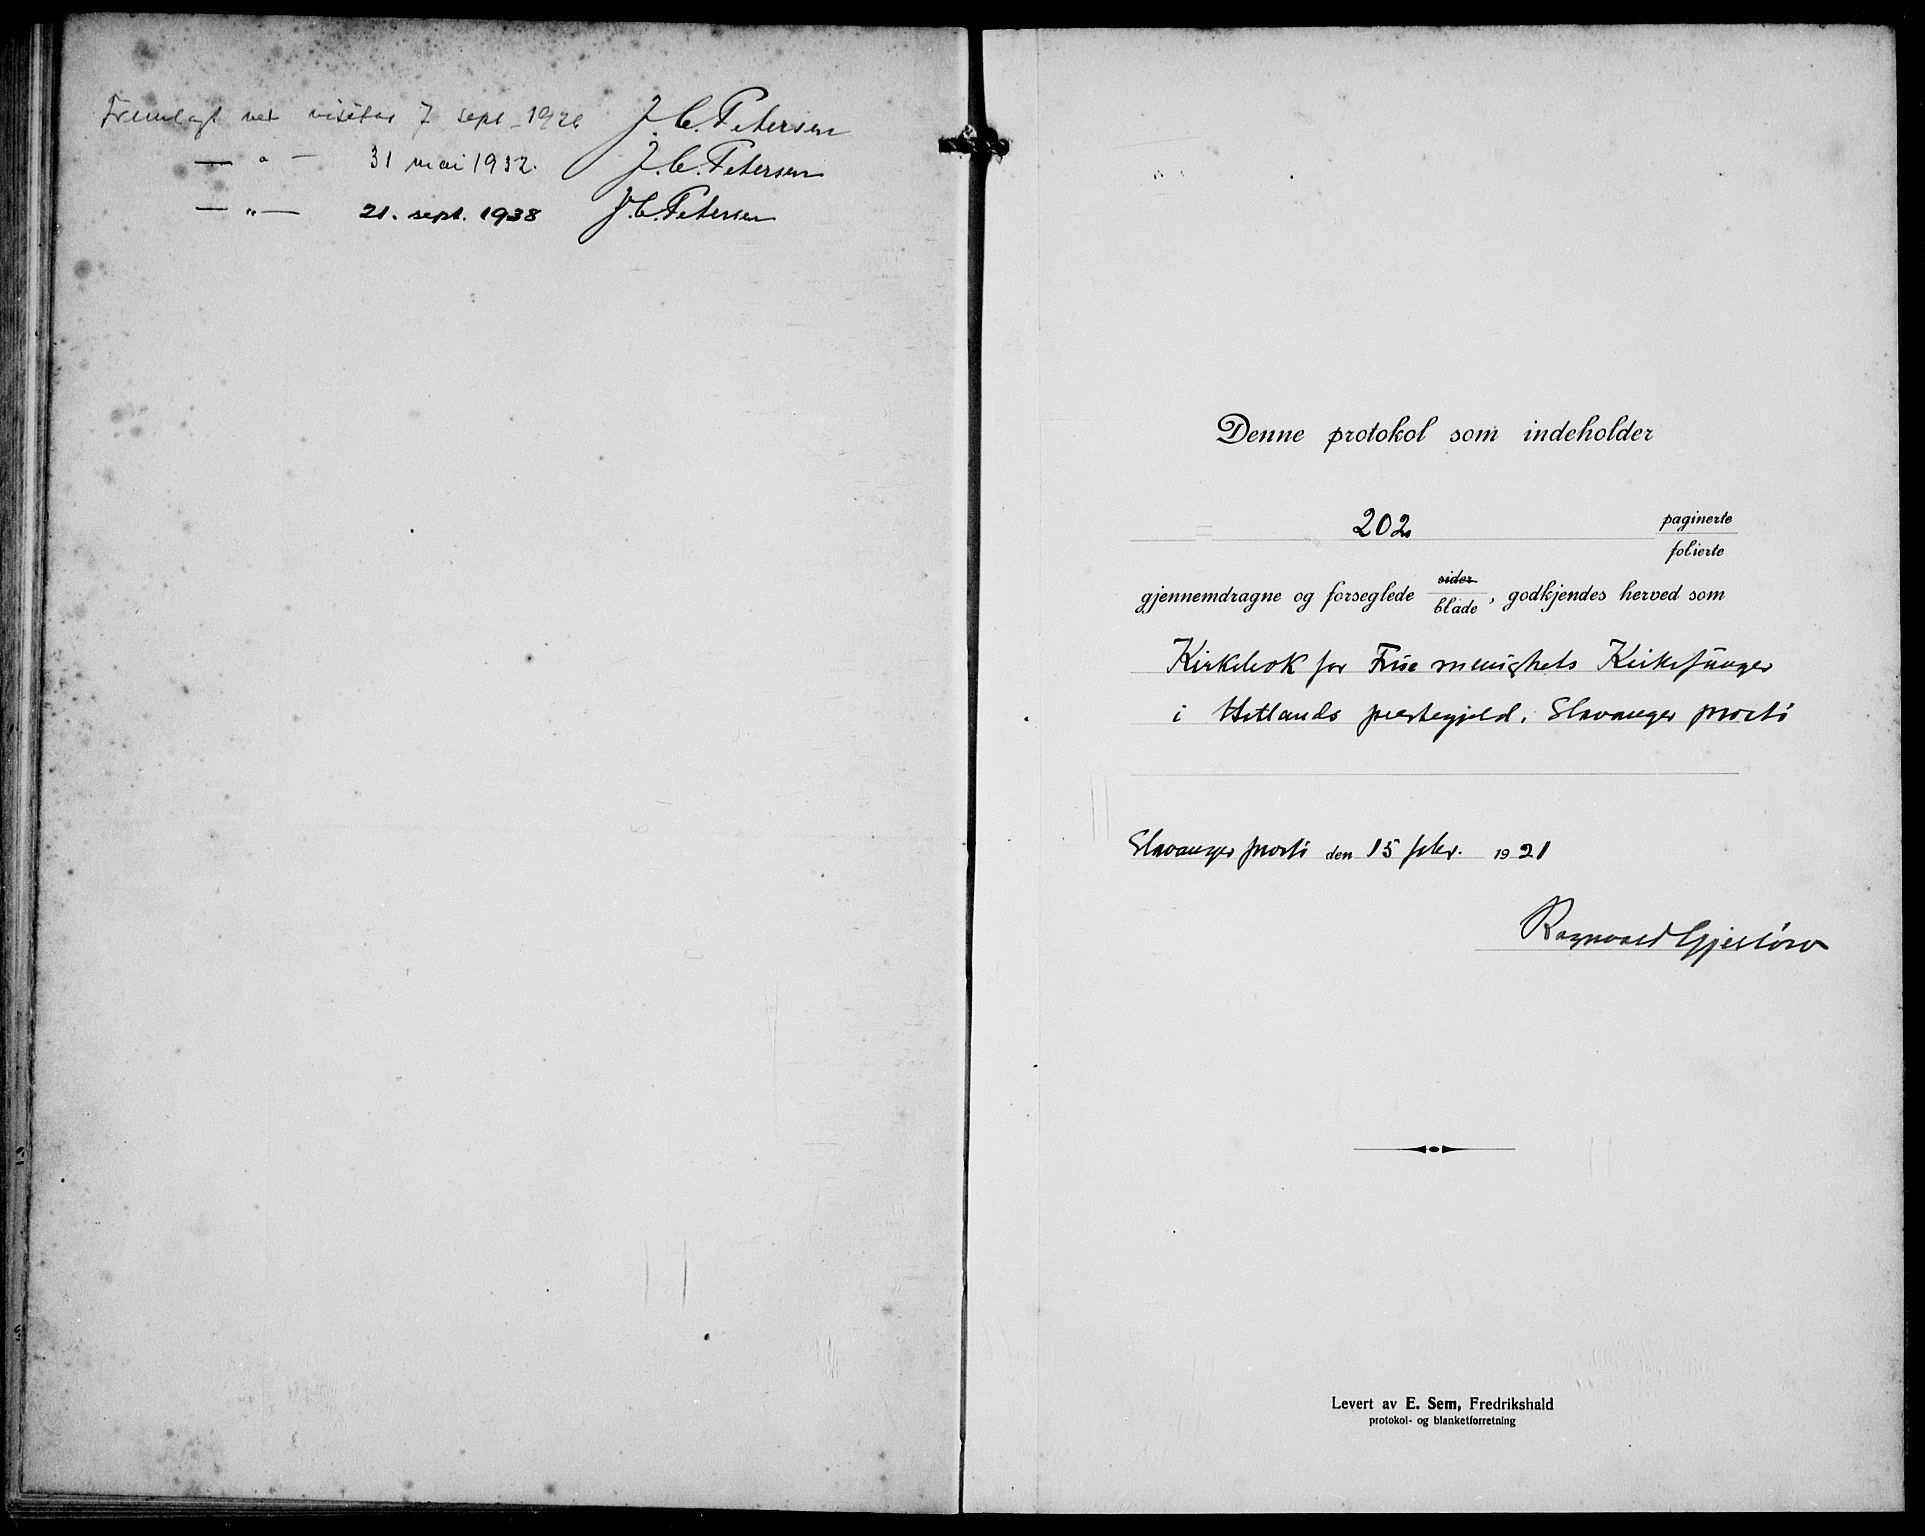 Fremlagt ved visitas 7 sept. 1926 J. C. Petersen
— " — 31 mai 1932. J. C. Petersen
— " — 21. sept. 1938 J. C. Petersen
Denne protokol som indeholder
202 paginerte
folierte
gjennemdragne og forseglede sider
blade, godkjendes herved som
Kirkebok for Frue menighets Kirkesanger
i Hetlands prestegjeld, Stavanger prosti
Stavanger prosti den 15 febr. 1921
Ragnvald Gjessing
Levert av E. Sem, Fredrikshald
protokol- og blanketforretning